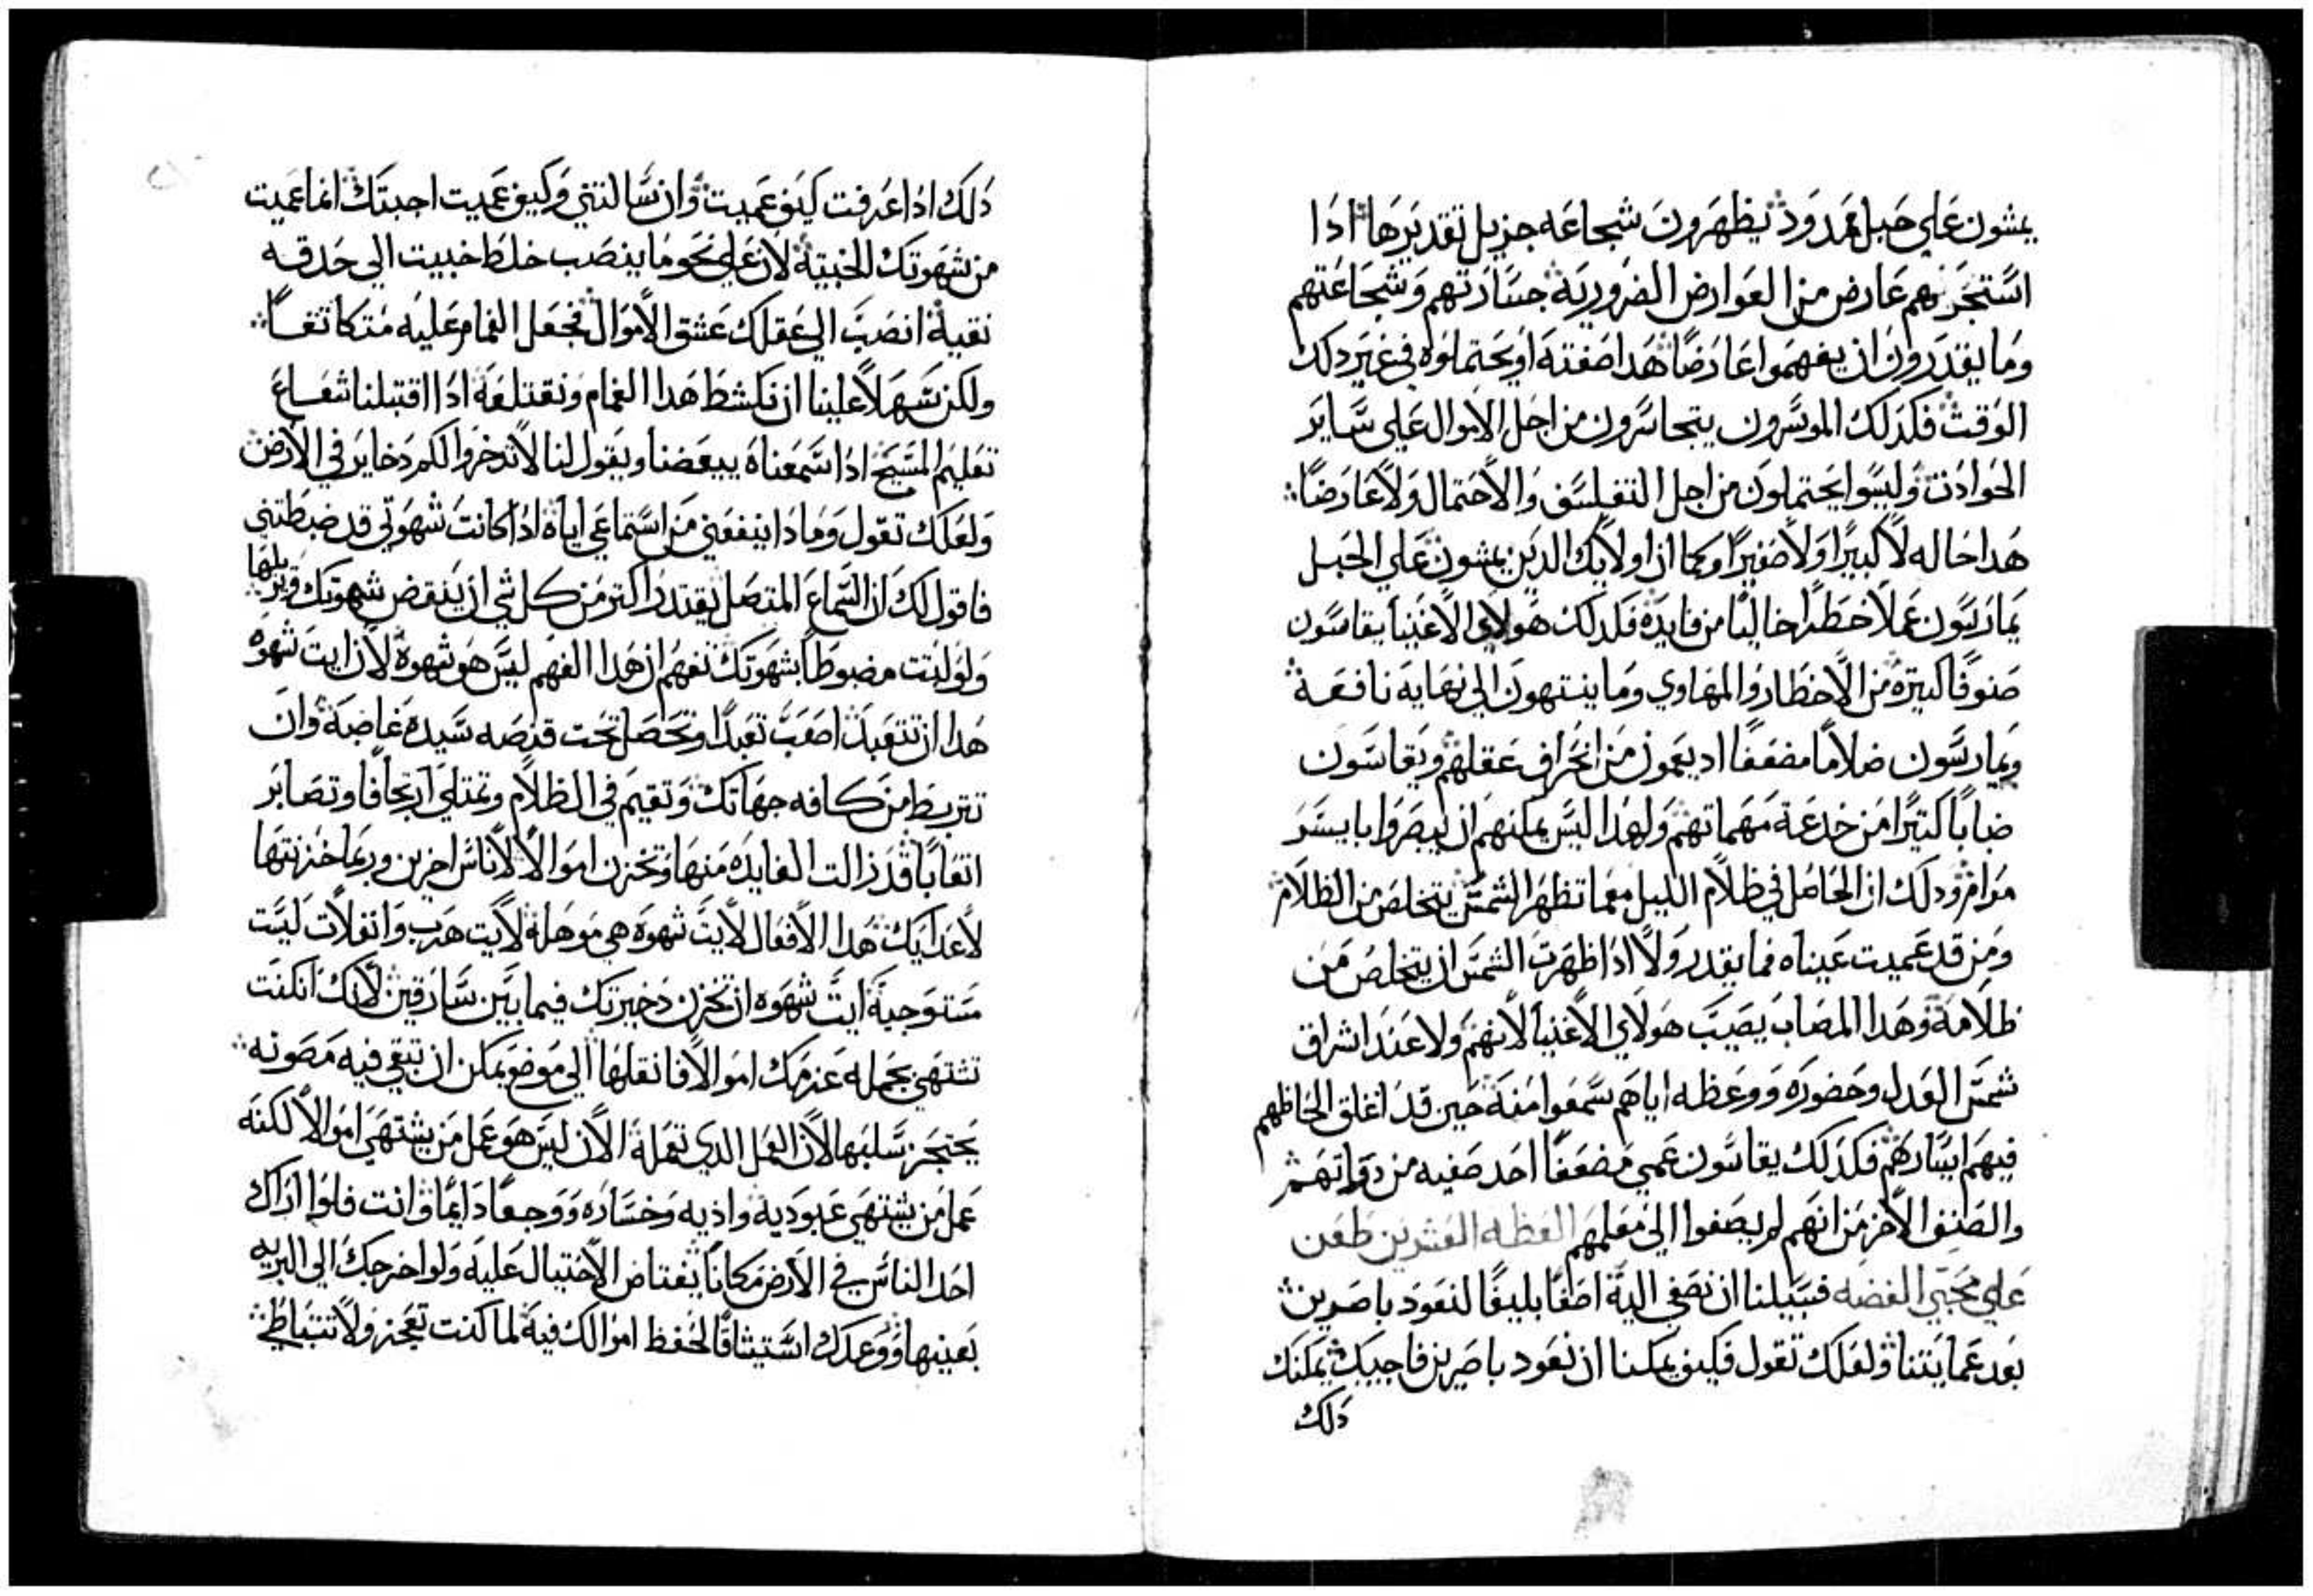 يمشون علي حبل ممدود يظهرون شجاعه جزيل تقديرها اذا
استجرهم عارض من العوارض الضرورية جسارتهم وشجاعتهم
وما يقتدرون ان يفهموا عارضًا هدا صفته او يحتملوه في غير دلك
الوقت فكدلك الموسرون يتجاسرون من اجل الاموال علي ساير
الحوادت وليسوا يحتملون من اجل التفلسف والاحتمال ولا عارضًا
هدا حاله لا كبيرًا ولا صغيرًا وكما ان اولايك الدين يمشون علي الحبل
يمارسون عملًا خطرًا خاليًا من فايده فكدلك هولاي الاغنيا يقاسون
صنوفًا كتيره من الاخطار والمهاوي وما ينتهون الي نهاية نافعة
ويمارسون ضلامًا مضعفًا اد يعمون من انحراف عقلهم ويقاسون
ضبابًا كتيرًا من خدعة مهماتهم ولهدا ليس يمكنهم ان يبصروا بايسر
مرام ودلك ان الحاصل في ظلام الليل معما تظهر الشمس يتخلص من الظلام
ومن قد عميت عيناه فما يقدر ولا ادا ظهرت الشمس ان يتخلص من
ظلامة وهدا المصاب يصيب هولاي الاغنيا لانهم ولا عند اشراق
شمس العدل وحضوره ووعظه اياهم سمعوا منه حين قد اغلق الحاظهم
فيهم ايسارهم فكدلك يقاسون عمي مضعفًا احد صفيه من دواتهم
والصنف الاخر من انهم لم يصغوا الي معلمهم العظه العشرين طعن
علي محبي الفضه فسبيلنا ان نصغي الية اصغًا بليغًا لنعود باصرين
بعد عمايتنا ولعلك تقول فكيف يمكننا ان نعود باصرين فاجيبك يمكنك
دلك
دلك ادا عرفت كيف عميت وان سالتني وكيف عميت اجبتك انما عميت
من شهوتك الخبيتة لان علي نحو ما ينصب خلط خبيت الي حدقه
نقية انصب الي عقلك عشق الاموال فجعل الغمام عليه متكاتفًا
ولكن سهلًا علينا ان نكشط هدا الغمام ونقتلعة ادا اقتبلنا شعاع
تعليم المسيح ادا سمعناه يبعضنا ويقول لنا لا تدخروا لكم دخاير في الارض
ولعلك تقول وما دا ينفعني من استماعي اياه ادا كانت شهوتي قد ضبطتني
فاقول لك ان السماع المتصل يقتدر اكتر من كل شي ان ينقض شهوتك ويزيلها
ولو لبتت مضبوطًا بشهوتك تفهم ان هدا الفهم ليس هو شهوة لان ايت شهوه
هدا ان تتعبد اصعب تعبدًا وتحصل تحت قنصه سيده غاصبة وان
تتربط من كافه جهاتك وتقيم في الظلام وتمتلي ارتجافًا وتصابر
اتعابًا قد زالت الفايده منها وتخزن اموالًا لاناس اخرين وربما خزنتها
لاعدايك هدا الافعال لايت شهوه هي موهلة لايت هرب وانفلات ليست
مستوجبة ايت شهوه ان تخزن دخيرتك فيما بين سارقين لانك ان كنت
تشتهي بجمله عزمك اموالًا فانقلها الي موضع يمكن ان تبقي فيه مصونه
يحتجز سلبها لان العمل الدي تعملة الان ليس هو عمل من يشتهي اموالًا لكنه
عمل من يشتهي عبوديه واذيه وخساره ووجعًا دايمًا وانت فلو اراك
احد الناس في الارض مكانًا يعتاض الاحتيال عليه ولو اخرجك الي البريه
بعينها ووعدك استيثاقًا لحفظ اموالك فية لما كنت تعجز ولا تتباطي